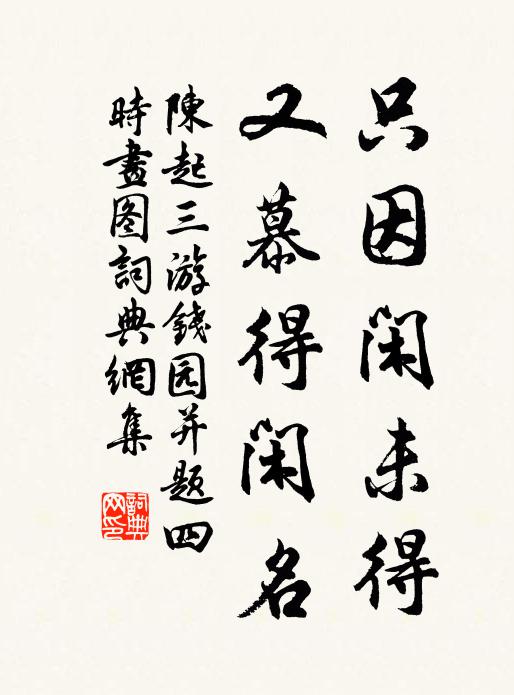 只因閑未得
又慕得閑名
陳起三游錢园并题四
時畫图詞典網集
詞典
网印